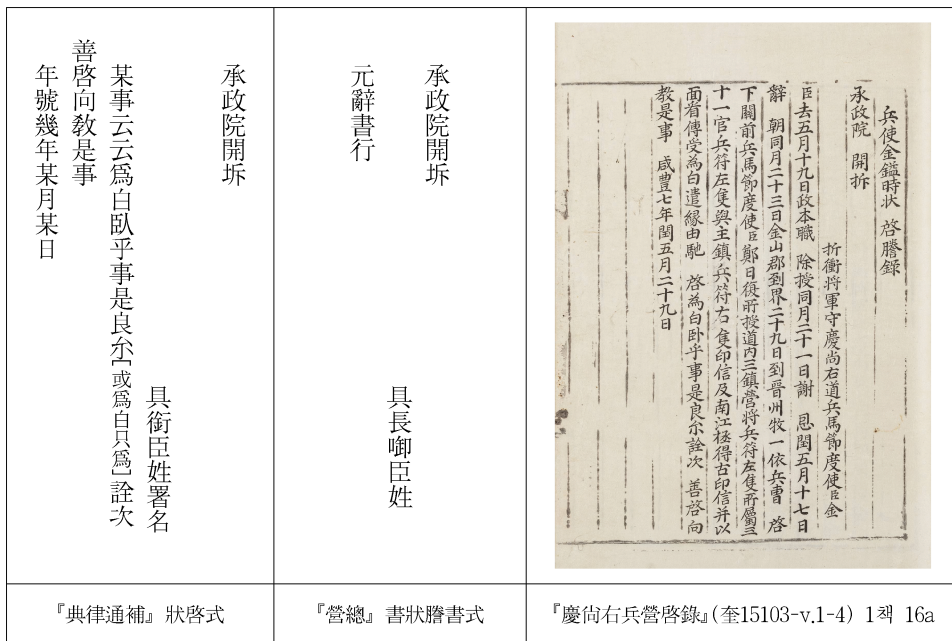 承政院開坼
具銜臣姓署名
某事云云爲白臥乎事是良尒[或爲白只爲]詮次
善啓向敎是事
年號幾年某月某日
『典律通補』狀啓式
承政院開坼
具長啣臣姓
元辭書行
『營總』書狀謄書式
兵使金鎰時狀 啓謄錄
承政院 開拆
折衝將軍守慶尙右道兵馬節度使臣金
臣去五月十九日政本職 除授同月二十一日謝 恩閏五月十七日
辭 朝同月二十三日金山郡到界二十九日到晉州牧一依兵曹 啓
下關前兵馬節度使臣鄭日復所授道內三鎮營將兵符左隻所屬三
十一官兵符左隻與主鎮兵符右隻印信及南江拯得古印信并以
面看傳受為白遣緣由馳 啓為白卧乎事是良尒詮次 善啓向
教是事 咸豊七年閏五月二十九日
『慶尙右兵營啓錄』(奎15103-v.1-4) 1책 16a